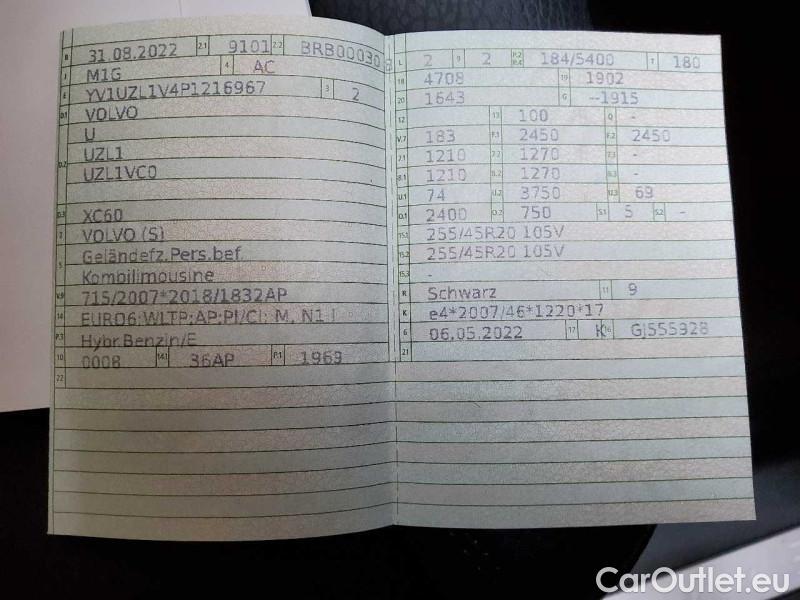 B 31.08.2022 2.1 9101 2.2 BRB000308
J M1G 4 AC
E YV1UZL1V4P1216967 3 2
D.1 VOLVO
U
D.2 UZL1
UZL1VC0
D.3 XC60
2 VOLVO (S)
5 Geländefz.Pers.bef.
Kombilimousine
V.9 715/2007*2018/1832AP
14 EURO6;WLTP;AP;PI/CI; M, N1 I
P.3 Hybr.Benzin/E
10 0008 14.1 36AP P.1 1969
22
L 2 9 2 P.2 P.4 184/5400 T 180
18 4708 19 1902
20 1643 G --1915
12 13 100 Q -
V.7 183 F.1 2450 F.2 2450
7.1 1210 7.2 1270 7.3 -
8.1 1210 8.2 1270 8.3 -
U.1 74 U.2 3750 U.3 69
O.1 2400 O.2 750 S.1 5 S.2 -
15.1 255/45R20 105V
15.2 255/45R20 105V
15.3 -
R Schwarz 11 9
K e4*2007/46*1220*17
6 06.05.2022 17 K 16 GJ555928
21
CarOutlet.eu